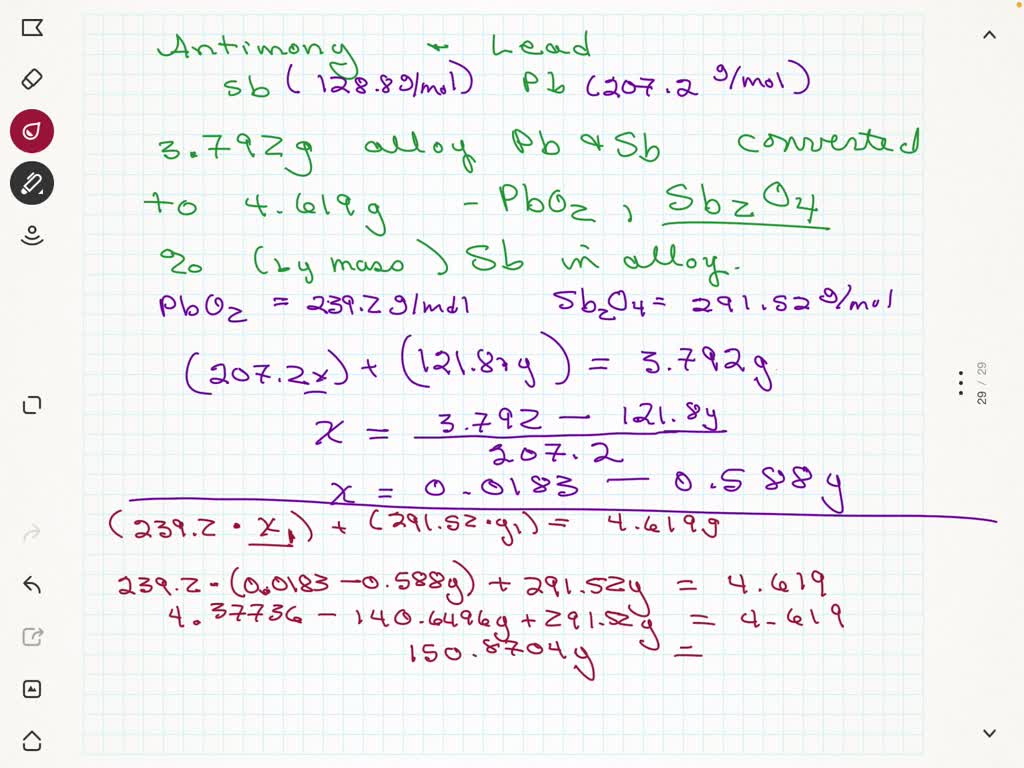 Antimony - Lead
Sb (128.8g/mol) Pb (207.2 g/mol)
3.792g alloy Pb & Sb converted
to 4.619g - PbO2, Sb2O4
% (by mass) Sb in alloy.
PbO2 = 239.2g/mol Sb2O4 = 291.52 g/mol
(207.2x) + (121.8*y) = 3.792g
x = 3.792 - 121.8y / 207.2
x = 0.0183 - 0.588y
(239.2 · x,) + (291.52·y,) = 4.619g
239.2 · (0.0183 - 0.588y) + 291.52y = 4.619
4.37736 - 140.6496y + 291.52y = 4.619
150.8704y =
29 / 29